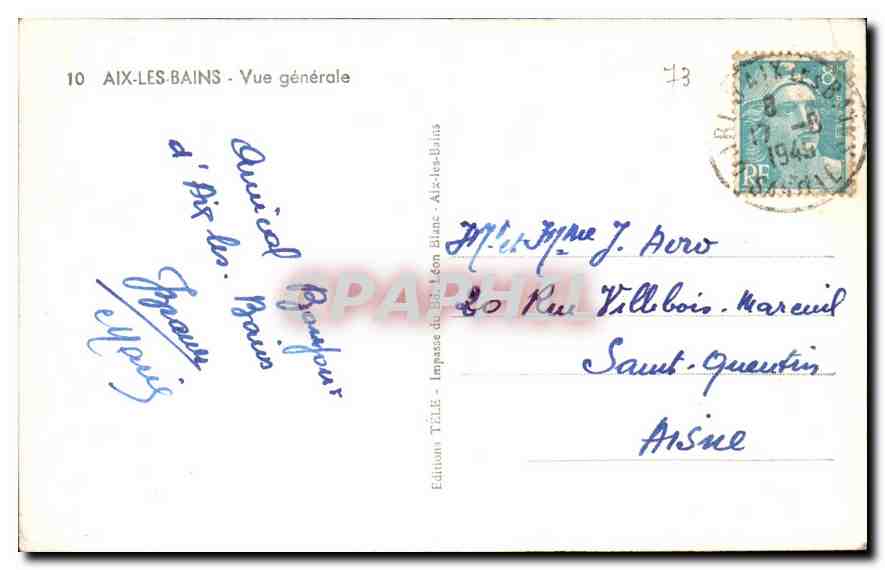 10 AIX-LES-BAINS - Vue générale
73
8
17 -8
1949
RF
Amical Bonjour
d'Aix les. Bains
Marie
Editions TELE - Impasse du Bd. Léon Blanc - Aix-les-Bains
CPAPHIL
Mr et Mme J. Avro
20 Rue Villebois-Mareuil
Saint-Quentin
Aisne